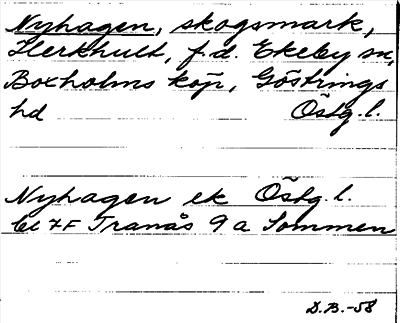 Nyhagen, skogsmark,
Herkhult, f.d. Ekeby sn,
Boxholms köp, Göstrings
hd Östg.l.
Nyhagen ek Östg.l.
bl 7F Tranås 9 a Sommen
D.B.-58